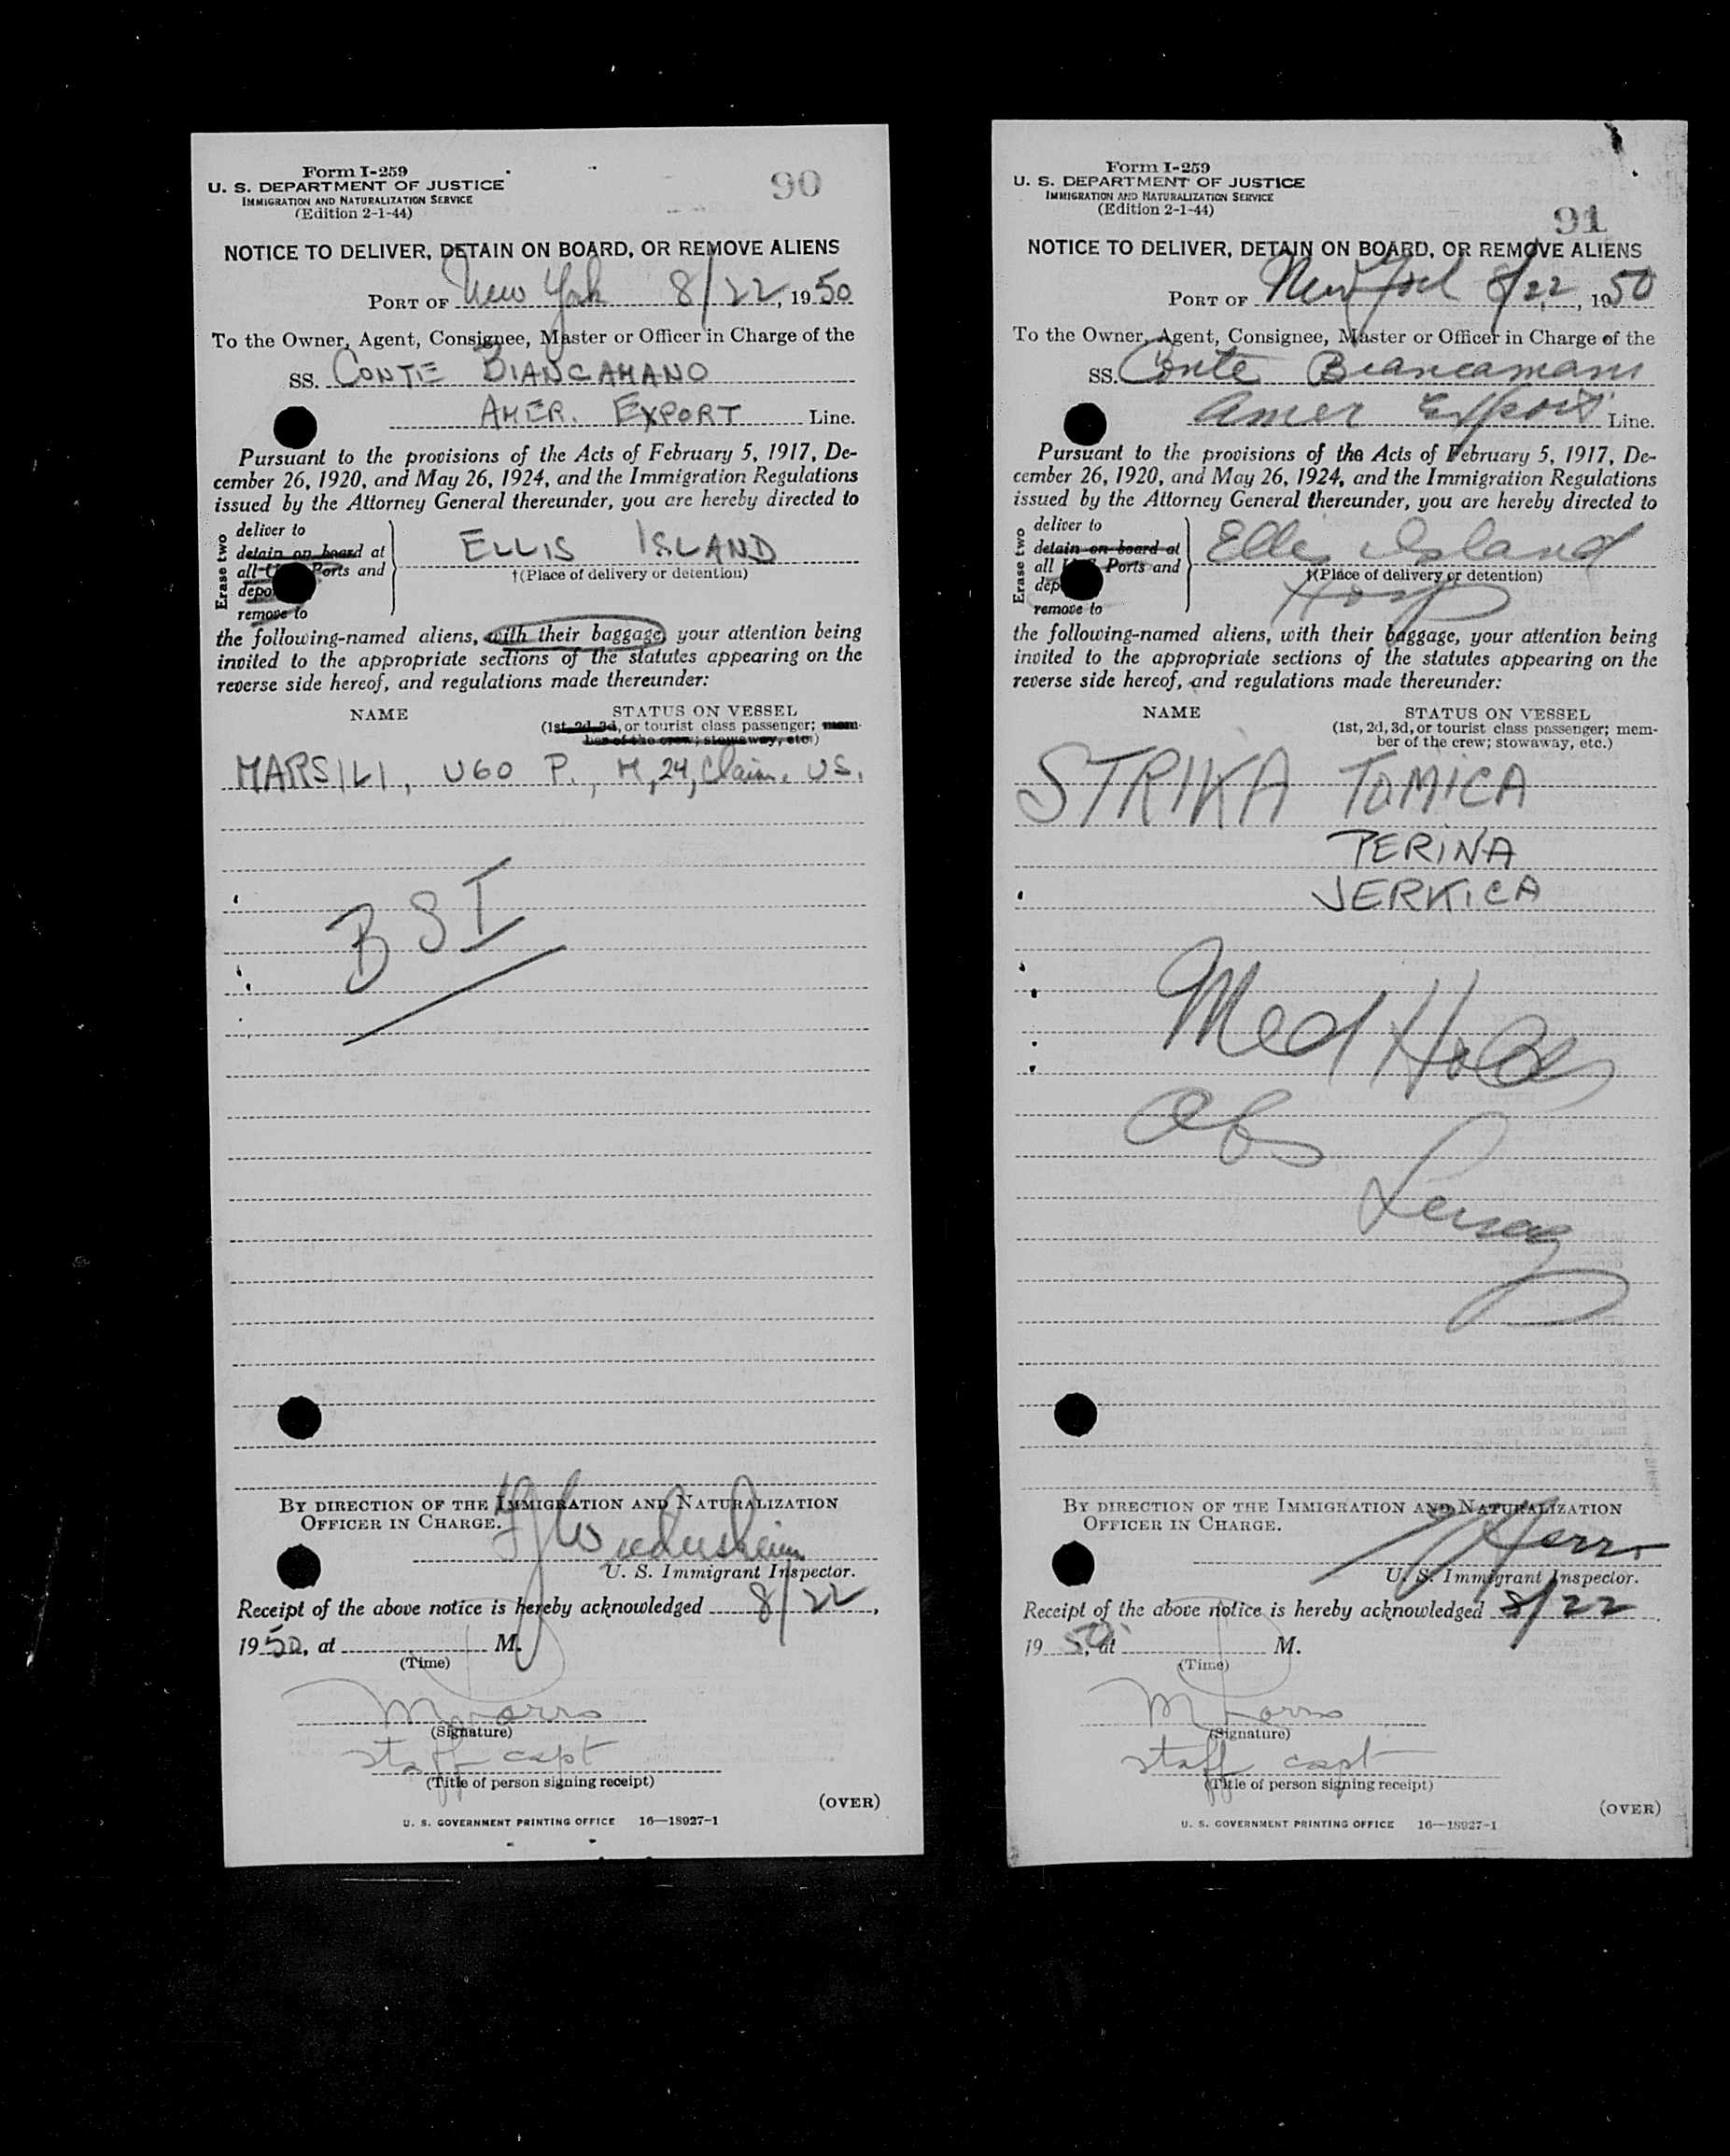 Form I-259
U. S. DEPARTMENT OF JUSTICE
IMMIGRATION AND NATURALIZATION SERVICE
(Edition 2-1-44)
90
NOTICE TO DELIVER, DETAIN ON BOARD, OR REMOVE ALIENS
PORT OF New York 8/22, 1950
To the Owner, Agent, Consignee, Master or Officer in Charge of the
SS. CONTE BIANCAMANO
AMER. EXPORT Line.
Pursuant to the provisions of the Acts of February 5, 1917, De-
cember 26, 1920, and May 26, 1924, and the Immigration Regulations
issued by the Attorney General thereunder, you are hereby directed to
Erase two
deliver to
detain on board at
all Ports and
remove to
ELLIS ISLAND
†(Place of delivery or detention)
the following-named aliens, with their baggage, your attention being
invited to the appropriate sections of the statutes appearing on the
reverse side hereof, and regulations made thereunder:
NAME STATUS ON VESSEL
(1st, 2d, 3d, or tourist class passenger; mem-
ber of the crew; stowaway, etc.)
MARSILI, UGO P., M, 24, Claim. US.
BSI
BY DIRECTION OF THE IMMIGRATION AND NATURALIZATION
OFFICER IN CHARGE.
U. S. Immigrant Inspector.
Receipt of the above notice is hereby acknowledged 8/22,
1950, at M.
(Time)
(Signature)
staff capt
(Title of person signing receipt)
(OVER)
U. S. GOVERNMENT PRINTING OFFICE 16—18927-1
Form I-259
U. S. DEPARTMENT OF JUSTICE
IMMIGRATION AND NATURALIZATION SERVICE
(Edition 2-1-44)
91
NOTICE TO DELIVER, DETAIN ON BOARD, OR REMOVE ALIENS
PORT OF New York 8/22, 1950
To the Owner, Agent, Consignee, Master or Officer in Charge of the
SS. Conte Biancamano
Amer Export Line.
Pursuant to the provisions of the Acts of February 5, 1917, De-
cember 26, 1920, and May 26, 1924, and the Immigration Regulations
issued by the Attorney General thereunder, you are hereby directed to
Erase two
deliver to
detain on board at
all Ports and
remove to
Ellis Island
†(Place of delivery or detention)
Hosp
the following-named aliens, with their baggage, your attention being
invited to the appropriate sections of the statutes appearing on the
reverse side hereof, and regulations made thereunder:
NAME STATUS ON VESSEL
(1st, 2d, 3d, or tourist class passenger; mem-
ber of the crew; stowaway, etc.)
STRIKA TOMICA
PERINA
JERKICA
Med Hold
BY DIRECTION OF THE IMMIGRATION AND NATURALIZATION
OFFICER IN CHARGE.
U. S. Immigrant Inspector.
Receipt of the above notice is hereby acknowledged 8/22
1950, at M.
(Time)
(Signature)
staff capt
(Title of person signing receipt)
(OVER)
U. S. GOVERNMENT PRINTING OFFICE 16—18927-1